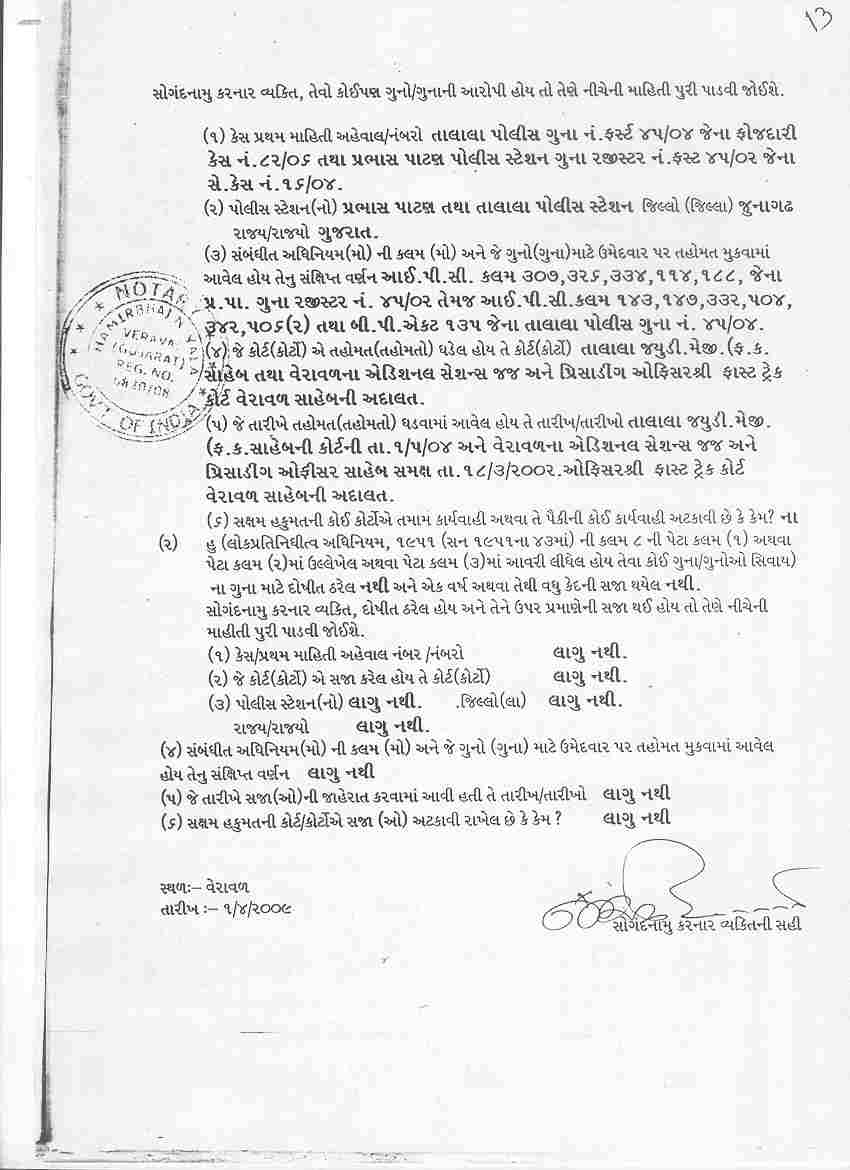 13
સોગંદનામુ કરનાર વ્યકિત, તેવો કોઈપણ ગુનો/ગુનાની આરોપી હોય તો તેણે નીચેની માહિતી પુરી પાડવી જોઈશે.
(૧) કેસ પ્રથમ માહિતી અહેવાલ/નંબરો તાલાલા પોલીસ ગુના નં.ફર્સ્ટ ૪૫/૦૪ જેના ફોજદારી
કેસ નં.૮૨/૦૬ તથા પ્રભાસ પાટણ પોલીસ સ્ટેશન ગુના રજીસ્ટર નં.ફસ્ટ ૪૫/૦૨ જેના
સે.કેસ નં.૧૬/૦૪.
(૨) પોલીસ સ્ટેશન(નો) પ્રભાસ પાટણ તથા તાલાલા પોલીસ સ્ટેશન જિલ્લો (જિલ્લા) જુનાગઢ
રાજય/રાજયો ગુજરાત.
(૩) સંબંધીત અધિનિયમ(મો) ની કલમ (મો) અને જે ગુનો(ગુના)માટે ઉમેદવાર પર તહોમત મુકવામાં
આવેલ હોય તેનુ સંક્ષિપ્ત વર્ણન આઈ.પી.સી. કલમ ૩૦૭,૩૨૬,૩૩૪,૧૧૪,૧૮૮, જેના
પ્ર.પા. ગુના રજીસ્ટર નં. ૪૫/૦૨ તેમજ આઈ.પી.સી.કલમ ૧૪૩,૧૪૭,૩૩૨,૫૦૪,
૩૪૨,૫૦૬(૨) તથા બી.પી.એકટ ૧૩૫ જેના તાલાલા પોલીસ ગુના નં. ૪૫/૦૪.
(૪) જે કોર્ટ(કોર્ટો) એ તહોમત(તહોમતો) ઘડેલ હોય તે કોર્ટ(કોર્ટો) તાલાલા જયુડી.મેજી.(ફ.ક.
સાહેબ તથા વેરાવળના એડિશનલ સેશન્સ જજ અને પ્રિસાડીંગ ઓફિસરશ્રી ફાસ્ટ ટ્રેક
કોર્ટ વેરાવળ સાહેબની અદાલત.
(૫) જે તારીખે તહોમત(તહોમતો) ઘડવામાં આવેલ હોય તે તારીખ/તારીખો તાલાલા જયુડી.મેજી.
(ફ.ક.સાહેબની કોર્ટની તા.૧/૫/૦૪ અને વેરાવળના એડિશનલ સેશન્સ જજ અને
પ્રિસાડીંગ ઓફીસર સાહેબ સમક્ષ તા.૧૮/૩/૨૦૦૨.ઓફિસરશ્રી ફાસ્ટ ટ્રેક કોર્ટ
વેરાવળ સાહેબની અદાલત.
(૬) સક્ષમ હકુમતની કોઈ કોર્ટોએ તમામ કાર્યવાહી અથવા તે પૈકીની કોઈ કાર્યવાહી અટકાવી છે કે કેમ? ના
(૨) હુ (લોકપ્રતિનિધીત્વ અધિનિયમ, ૧૯૫૧ (સન ૧૯૫૧ના ૪૩માં) ની કલમ ૮ ની પેટા કલમ (૧) અથવા
પેટા કલમ (૨)માં ઉલ્લેખેલ અથવા પેટા કલમ (૩)માં આવરી લીધેલ હોય તેવા કોઈ ગુના/ગુનાઓ સિવાય)
ના ગુના માટે દોષીત ઠરેલ નથી અને એક વર્ષ અથવા તેથી વધુ કેદની સજા થયેલ નથી.
સોગંદનામુ કરનાર વ્યકિત, દોષીત ઠરેલ હોય અને તેને ઉપર પ્રમાણેની સજા થઈ હોય તો તેણે નીચેની
માહીતી પુરી પાડવી જોઈશે.
(૧) કેસ/પ્રથમ માહિતી અહેવાલ નંબર /નંબરો લાગુ નથી.
(૨) જે કોર્ટ(કોર્ટો) એ સજા કરેલ હોય તે કોર્ટ(કોર્ટો) લાગુ નથી.
(૩) પોલીસ સ્ટેશન(નો) લાગુ નથી. .જિલ્લો(લા) લાગુ નથી.
રાજય/રાજયો લાગુ નથી.
(૪) સંબંધીત અધિનિયમ(મો) ની કલમ (મો) અને જે ગુનો (ગુના) માટે ઉમેદવાર પર તહોમત મુકવામાં આવેલ
હોય તેનુ સંક્ષિપ્ત વર્ણન લાગુ નથી
(૫) જે તારીખે સજા(ઓ)ની જાહેરાત કરવામાં આવી હતી તે તારીખ/તારીખો લાગુ નથી
(૬) સક્ષમ હકુમતની કોર્ટ/કોર્ટોએ સજા (ઓ) અટકાવી રાખેલ છે કે કેમ ? લાગુ નથી
સ્થળઃ– વેરાવળ
તારીખ :– ૧/૪/૨૦૦૯
સોગંદનામુ કરનાર વ્યકિતની સહી
NOTA
HAMIRBHAI N VALA
VERAVAL
(GUJARAT)
REG. NO.
GOVT. OF INDIA